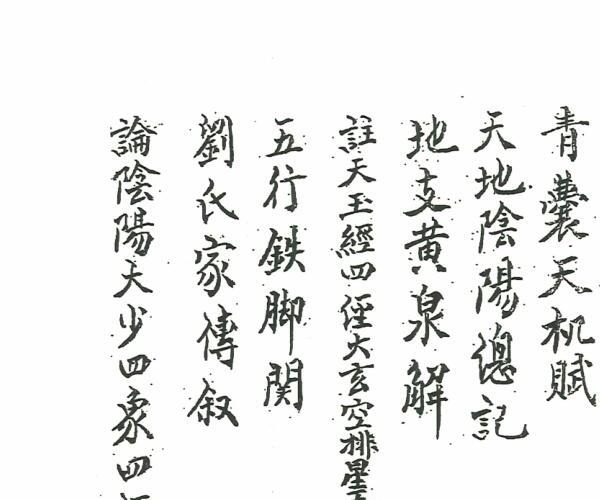 青囊天机賦
天地陰陽偬記
地支黄泉解
註天玉經四徑大玄空排星
五行鉄脚関
劉氏家傳叙
論陰陽大少四象四